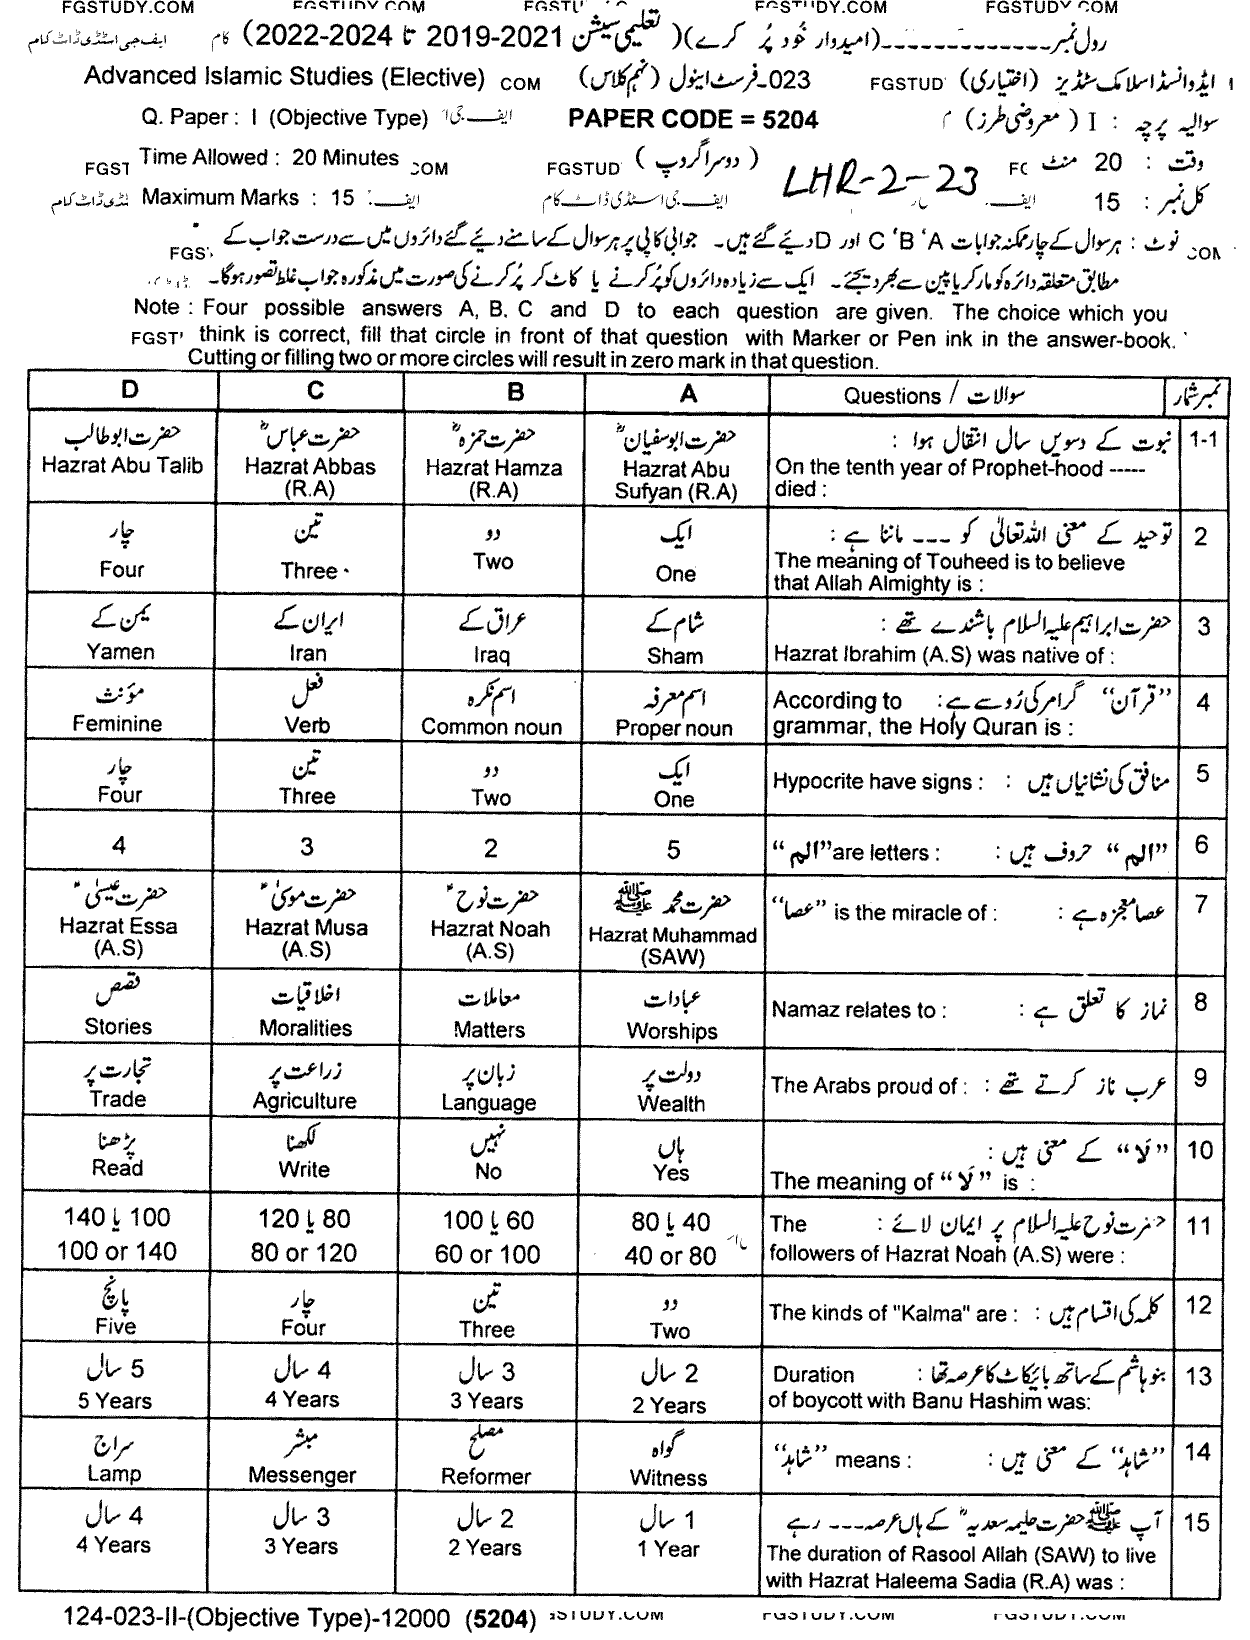 FGSTUDY.COM FGSTUDY.COM FGSTUDY.COM FGSTUDY.COM
رول نمبر ـ ـ ـ ـ ـ ـ ـ ـ ـ ـ ـ ـ ـ (امیدوار خُود پُر کرے) (تعلیمی سیشن 2021-2019 تا 2024-2022) کام ایف جی اسٹڈی ڈاٹ کام
ایڈوانسڈ اسلامک سٹڈیز (اختیاری) FGSTUD 023۔فرسٹ اینول (نہم کلاس) COM Advanced Islamic Studies (Elective)
سوالیہ پرچہ : I (معروضی طرز) PAPER CODE = 5204 ایف جی Q. Paper : I (Objective Type)
وقت : 20 منٹ (دوسرا گروپ) FGSTUD COM Time Allowed : 20 Minutes FGST
LHR-2-23
کل نمبر : 15 ایف ایف جی اسٹڈی ڈاٹ کام ایف Maximum Marks : 15 ڈاٹ کام
نوٹ : ہر سوال کے چار ممکنہ جوابات A ‘B ‘C اور D دیئے گئے ہیں۔ جوابی کاپی پر ہر سوال کے سامنے دیئے گئے دائروں میں سے درست جواب کے
مطابق متعلقہ دائرہ کو مارکر یا پین سے بھر دیجئے۔ ایک سے زیادہ دائروں کو پُر کرنے یا کاٹ کر پُر کرنے کی صورت میں مذکورہ جواب غلط تصور ہوگا۔
Note : Four possible answers A, B, C and D to each question are given. The choice which you
FGST think is correct, fill that circle in front of that question with Marker or Pen ink in the answer-book.
Cutting or filling two or more circles will result in zero mark in that question.
D C B A Questions / سوالات نمبر شمار
حضرت ابو طالب حضرت عباسؓ حضرت حمزہؓ حضرت ابو سفیانؓ نبوت کے دسویں سال انتقال ہوا : 1-1
Hazrat Abu Talib Hazrat Abbas (R.A) Hazrat Hamza (R.A) Hazrat Abu Sufyan (R.A) On the tenth year of Prophet-hood ----- died :
چار تین دو ایک توحید کے معنی اللہ تعالیٰ کو ۔۔۔ ماننا ہے : 2
Four Three Two One The meaning of Touheed is to believe that Allah Almighty is :
یمن کے ایران کے عراق کے شام کے حضرت ابراہیم علیہ السلام باشندے تھے : 3
Yamen Iran Iraq Sham Hazrat Ibrahim (A.S) was native of :
مؤنث فعل اسم نکرہ اسم معرفہ ’’قرآن‘‘ گرامر کی رُو سے ہے : 4
Feminine Verb Common noun Proper noun According to grammar, the Holy Quran is :
چار تین دو ایک منافق کی نشانیاں ہیں : 5
Four Three Two One Hypocrite have signs :
4 3 2 5 “الم” are letters : “الم” حروف ہیں : 6
حضرت عیسیٰؑ حضرت موسیٰؑ حضرت نوحؑ حضرت محمد ﷺ عصا معجزہ ہے : 7
Hazrat Essa (A.S) Hazrat Musa (A.S) Hazrat Noah (A.S) Hazrat Muhammad (SAW) “عصا” is the miracle of :
قصص اخلاقیات معاملات عبادات نماز کا تعلق ہے : 8
Stories Moralities Matters Worships Namaz relates to :
تجارت پر زراعت پر زبان پر دولت پر عرب ناز کرتے تھے : 9
Trade Agriculture Language Wealth The Arabs proud of :
پڑھنا لکھنا نہیں ہاں “لَا” کے معنی ہیں : 10
Read Write No Yes The meaning of “لَا” is :
100 یا 140 80 یا 120 60 یا 100 40 یا 80 حضرت نوح علیہ السلام پر ایمان لائے : 11
100 or 140 80 or 120 60 or 100 40 or 80 The followers of Hazrat Noah (A.S) were :
پانچ چار تین دو کلمہ کی اقسام ہیں : 12
Five Four Three Two The kinds of "Kalma" are :
5 سال 4 سال 3 سال 2 سال بنو ہاشم کے ساتھ بائیکاٹ کا عرصہ تھا : 13
5 Years 4 Years 3 Years 2 Years Duration of boycott with Banu Hashim was:
سراج مبشر مصلح گواہ “شاہد” کے معنی ہیں : 14
Lamp Messenger Reformer Witness “شاہد” means :
4 سال 3 سال 2 سال 1 سال آپ ﷺ حضرت حلیمہ سعدیہؓ کے ہاں عرصہ ۔۔۔ رہے 15
4 Years 3 Years 2 Years 1 Year The duration of Rasool Allah (SAW) to live with Hazrat Haleema Sadia (R.A) was :
124-023-II-(Objective Type)-12000 (5204) GSTUDY.COM FGSTUDY.COM FGSTUDY.COM